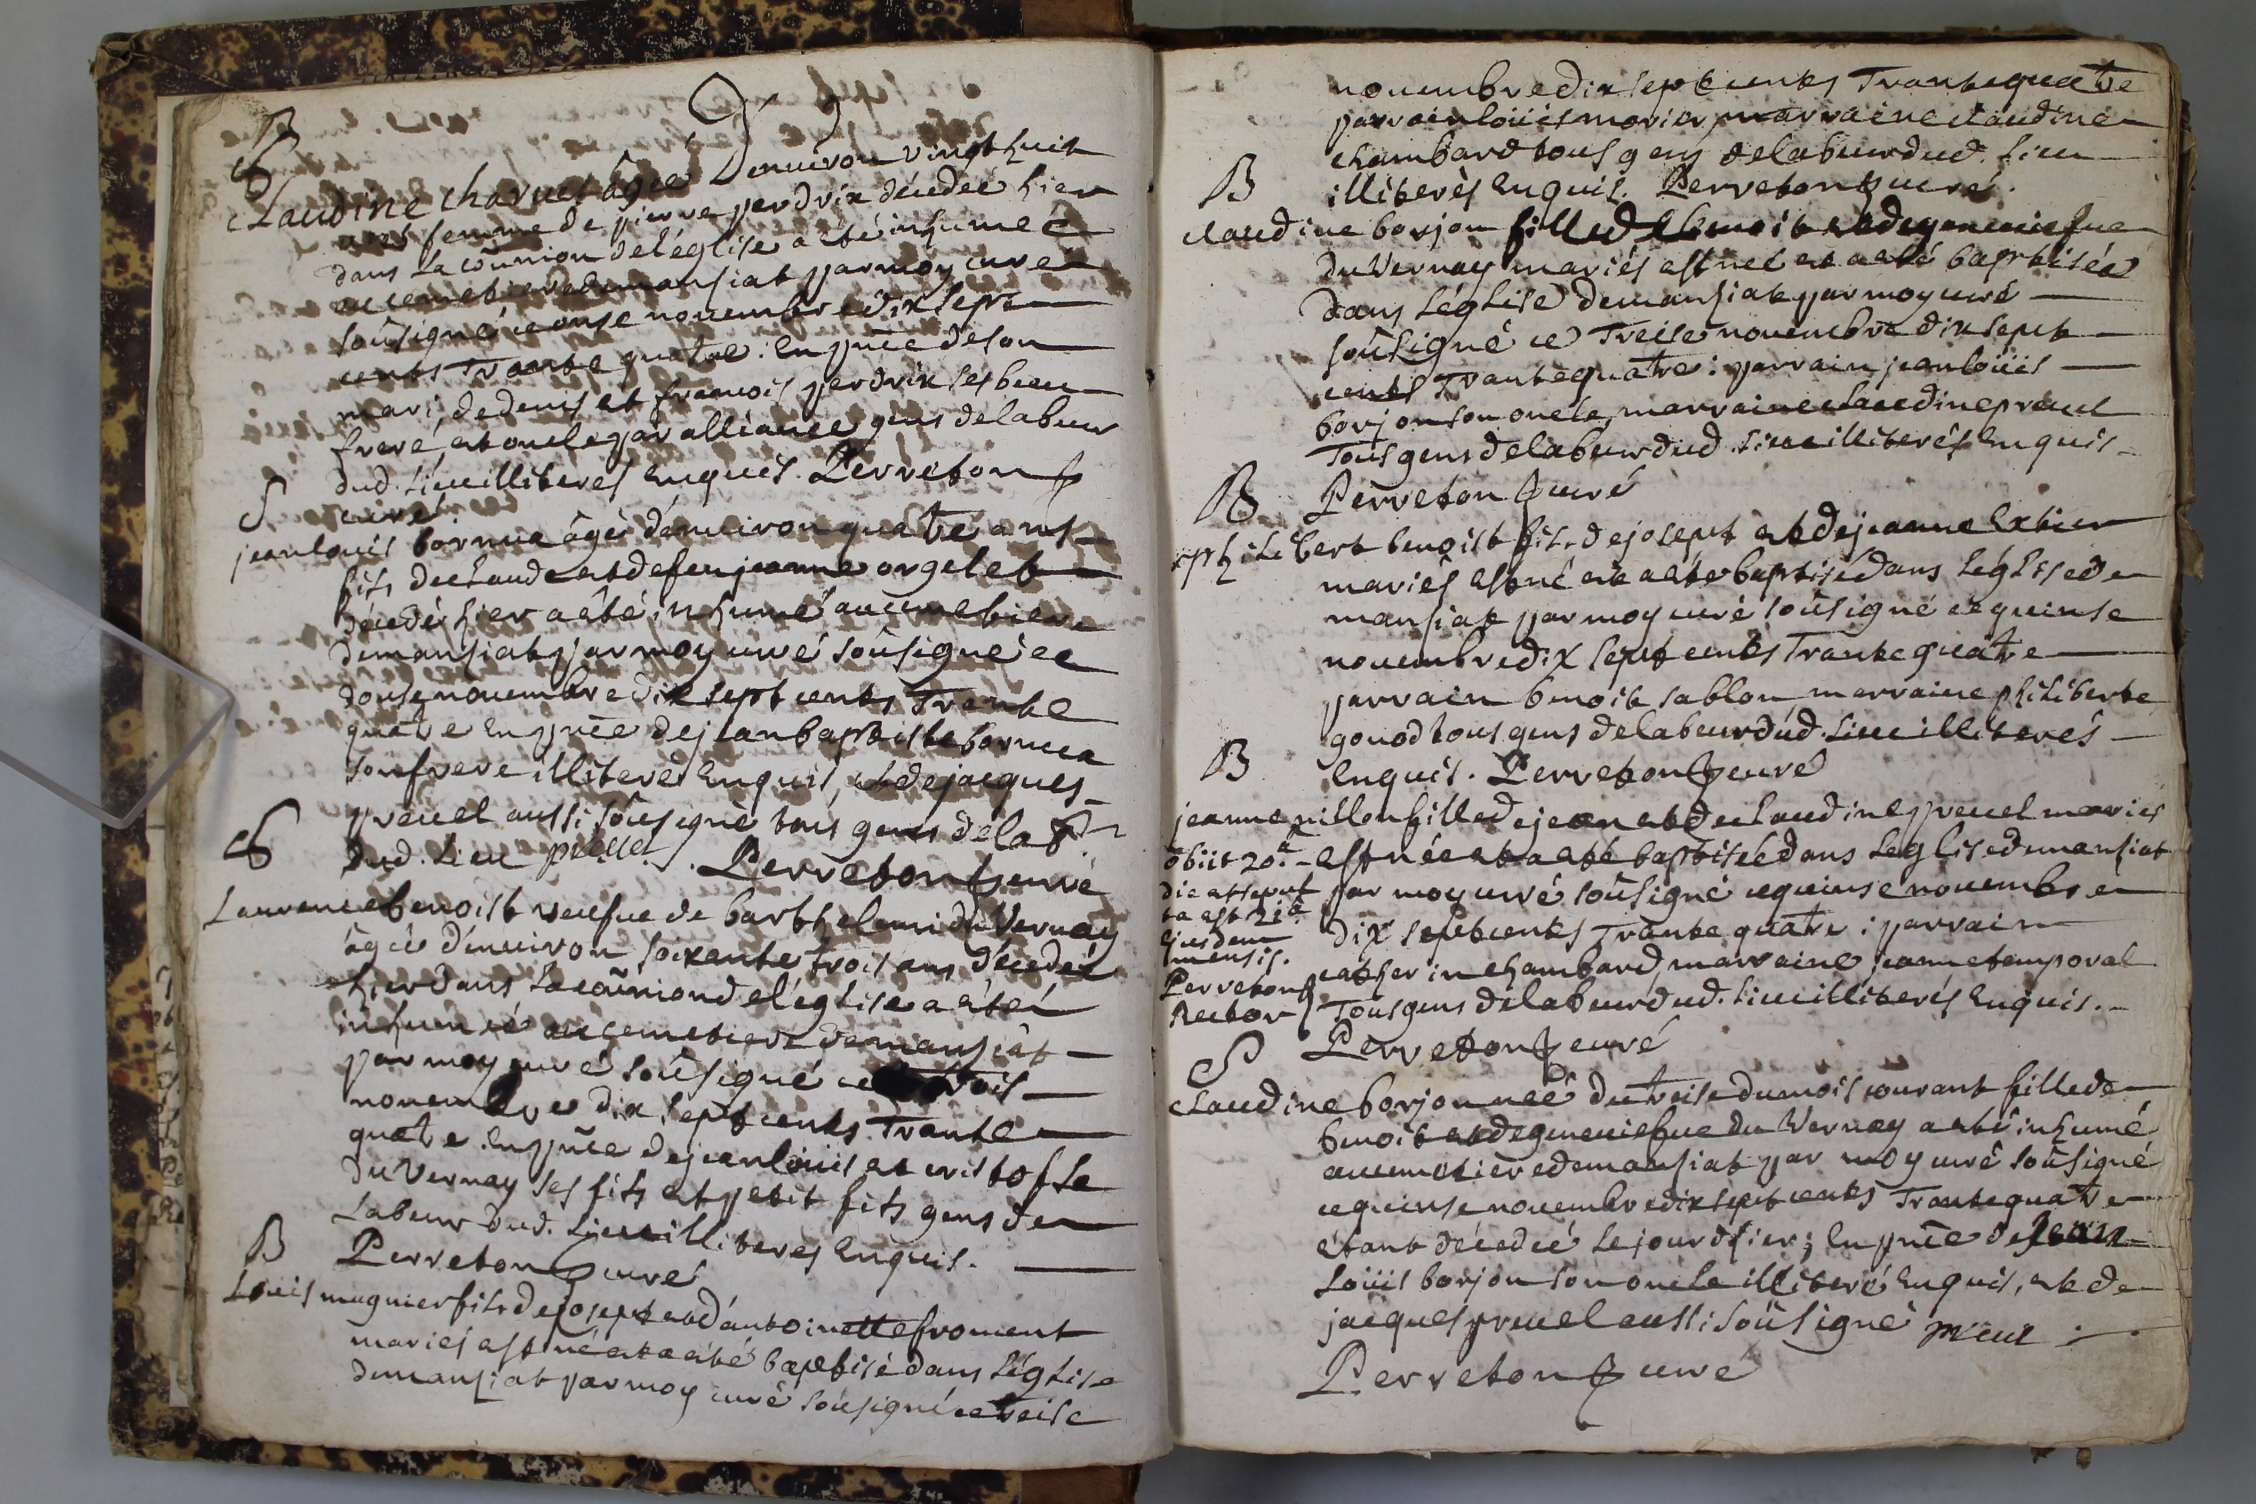 S
Claudine charvet âgée denuiron vingt huit
ans femme de pierre perdrix décedée hier
dans la coũnion de l'église a esté inhumée
au cemetiere de mansiat par moy curé
soûsigné ce onse nouembre dix sept
cents Trante quatre: En pñce de son
mari de denis et francois perdrix ses beau
frere, et oncle par alliance gens de labeur
dud. Lieu illiterés Enquis. Perreton
curé
S
jean louis bornua âgé d'enuiron quatre ans
fils de claude et de feu jeanne orgelet
décedé hier a esté inhumé au cemetiere
de mansiat par moy curé soûsigné ce
douse nouembre dix sept cents Trente
quatre En pñce de jean baptiste bornua
son frere illiteré Enquis, et de jacques
preuel aussi soûsigné tous gens de lab.
dud. Lieu preuel. Perreton curé
S
Laurence benoist veufue de barthelemi du Vernay
âgée d'enuiron soixante trois ans décedée
hier dans la coũnion de l'église a esté
inhumée au cemetiere de mansiat
par moy curé soûsigné ce
nouembre dix sept cents Trante
quatre En pñce de jean loüis et cristofle
du Vernay ses fils et petit fils gens de
Labeur dud. Lieu illiteres Enquis.
Perreton curé
B
Louis mugnier fils de josept et d'antoinette froment
mariés est né et a esté baptisé dans l'église
de mansiat par moy curé soûsigné ce treise
nouembre dix sept cents Trante quatre
parrain loüis morier marraine claudine
chambard tous gens de labeur dud. Lieu
illiterés Enquis. Perreton curé.
B
claudine borjon fille de benoit et de geneuiefue
du Vernay mariés est née et a esté baptisée
dans l'église de mansiat par moy curé
soûsigné ce Treise nouembre dix sept
cents Trante quatre: parrain jean loüis
borjon son oncle, marraine claudine preuel
Tous gens de labeur dud. Lieu illiterés Enquis
Perreton curé
B
philibert benoist fils de josept et de jeanne
mariés est né et a esté baptisé dans l'église de
mansiat par moy curé soûsigné ce quinse
nouembre dix sept cents Trante quatre
parrain benoit sablon marraine philiberte
gonod tous gens de labeur dud. Lieu illiterés
Enquis. Perreton curé
B
jeanne pillon fille de jean et de claudine preuel mariés
est née et a esté baptisée dans l'église de mansiat
par moy curé soûsigné ce quinse nouembre
dix sept cents Trante quatre: parrain
catherin chambard, marraine jeanne temporal
Tous gens de labeur dud. Lieu illiterés Enquis.
Perreton curé
obiit 20ª
die et sepul
ta est 21ª
Ejusdem
mensis.
Perreton
Rector
S
claudine borjon née du treise du mois courant fille de
benoit et de geneuiefue du Vernay a esté inhumé
au cemetiere de mansiat par moy curé soûsigné
ce quinse nouembre dix sept cents Trante quatre
étant décedée le jour d'hier; En pñce de jean
Loüis borjon son oncle illiteré Enquis, et de
jacques preuel aussi soûsigné preuel
Perreton curé